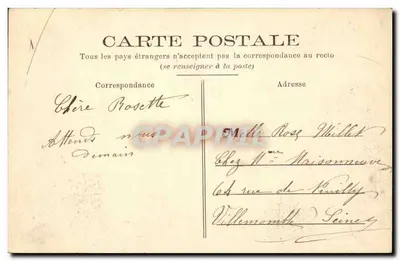 CARTE POSTALE
Tous les pays étrangers n'acceptent pas la correspondance au recto
(se renseigner à la poste)
Correspondance
Adresse
Chère Rosette
Attends nous
Demain
Melle Rose Millet
Chez Mme Maisonneuve
64 rue de Neuilly
Villemomble Seine
CARTAPHILIA